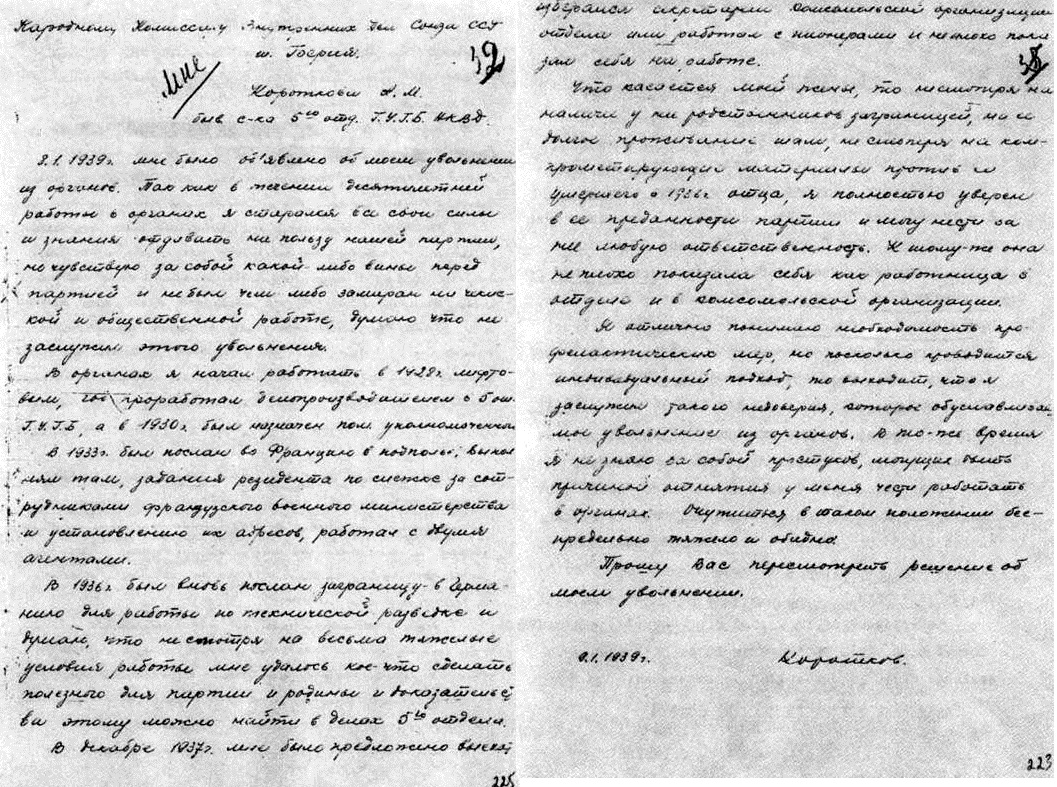 Народному Комиссару Внутренних дел Союза ССР
т. Берия.
32
Мне
Короткова А. М.
быв с-ка 5го отд. Г.У.Г.Б. НКВД.
8.1.1939г. мне было об'явлено об моем увольнении
из органов. Так как в течении десятилетней
работы в органах я старался все свои силы
и знания отдавать на пользу нашей партии,
не чувствую за собой какой-либо вины перед
партией и не был чем либо замаран на чекис-
кой и общественной работе, думаю что не
заслужил этого увольнения.
В органах я начал работать в 1928г. лифто-
вым, проработал делопроизводителем в 5 от.
Г.У.Г.Б, а в 1930г. был назначен пом. уполномоченным
В 1933г. был послан во Францию в подполье, выпол
нял там, задания резидента по слежке за сот-
рудниками французского военного министерства
и установлению их адресов, работая с двумя
агентами.
В 1936г. был вновь послан заграницу в Герма-
нию для работы по технической разведке и
думаю, что несмотря на весьма тяжелые
условия работы мне удалось кое-что сделать
полезного для партии и родины и доказательст
ва этому можно найти в делах 5го отдела.
В декабре 1937г. мне было предложено выехат
225
избирался секретарем комсомольской организации
отдела или работал с пионерами и неплохо пока
зал себя на работе.
Что касается моей жены, то несмотря на
наличие у ней родственников заграницей, на ее
долгое проживание там, несмотря на ком-
прометирующие материалы против ее
умершего в 1936г отца, я полностью уверен
в ее преданности партии и могу нести за
нее любую ответственность. К тому-же она
неплохо показала себя как работница в
отделе и в комсомольской организации.
Я отлично понимаю необходимость про-
филактических мер, но поскольку проводится
индивидуальный подход, то выходит, что я
заслужил такого недоверия, которое обуславливает
мое увольнение из органов. В то-же время
я не знаю за собой проступков, могущих быть
причиной отнятия у меня чести работать
в органах. Очутиться в таком положении бес-
предельно тяжело и обидно.
Прошу Вас пересмотреть решение об
моем увольнении.
9.1.1939г. Коротков.
223